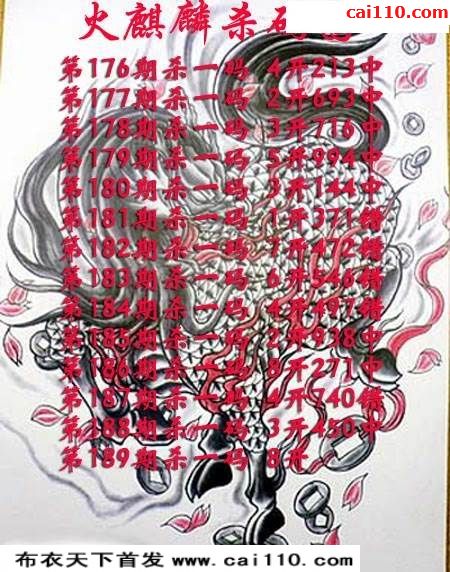 cai110.com
火麒麟杀码
第176期杀一码 4开213中
第177期杀一码 2开693中
第178期杀一码 3开716中
第179期杀一码 5开994中
第180期杀一码 3开144中
第181期杀一码 1开371错
第182期杀一码 7开472错
第183期杀一码 6开546错
第184期杀一码 4开497错
第185期杀一码 2开938中
第186期杀一码 8开271中
第187期杀一码 4开740错
第188期杀一码 3开450中
第189期杀一码 8开
布衣天下首发 www.cai110.com